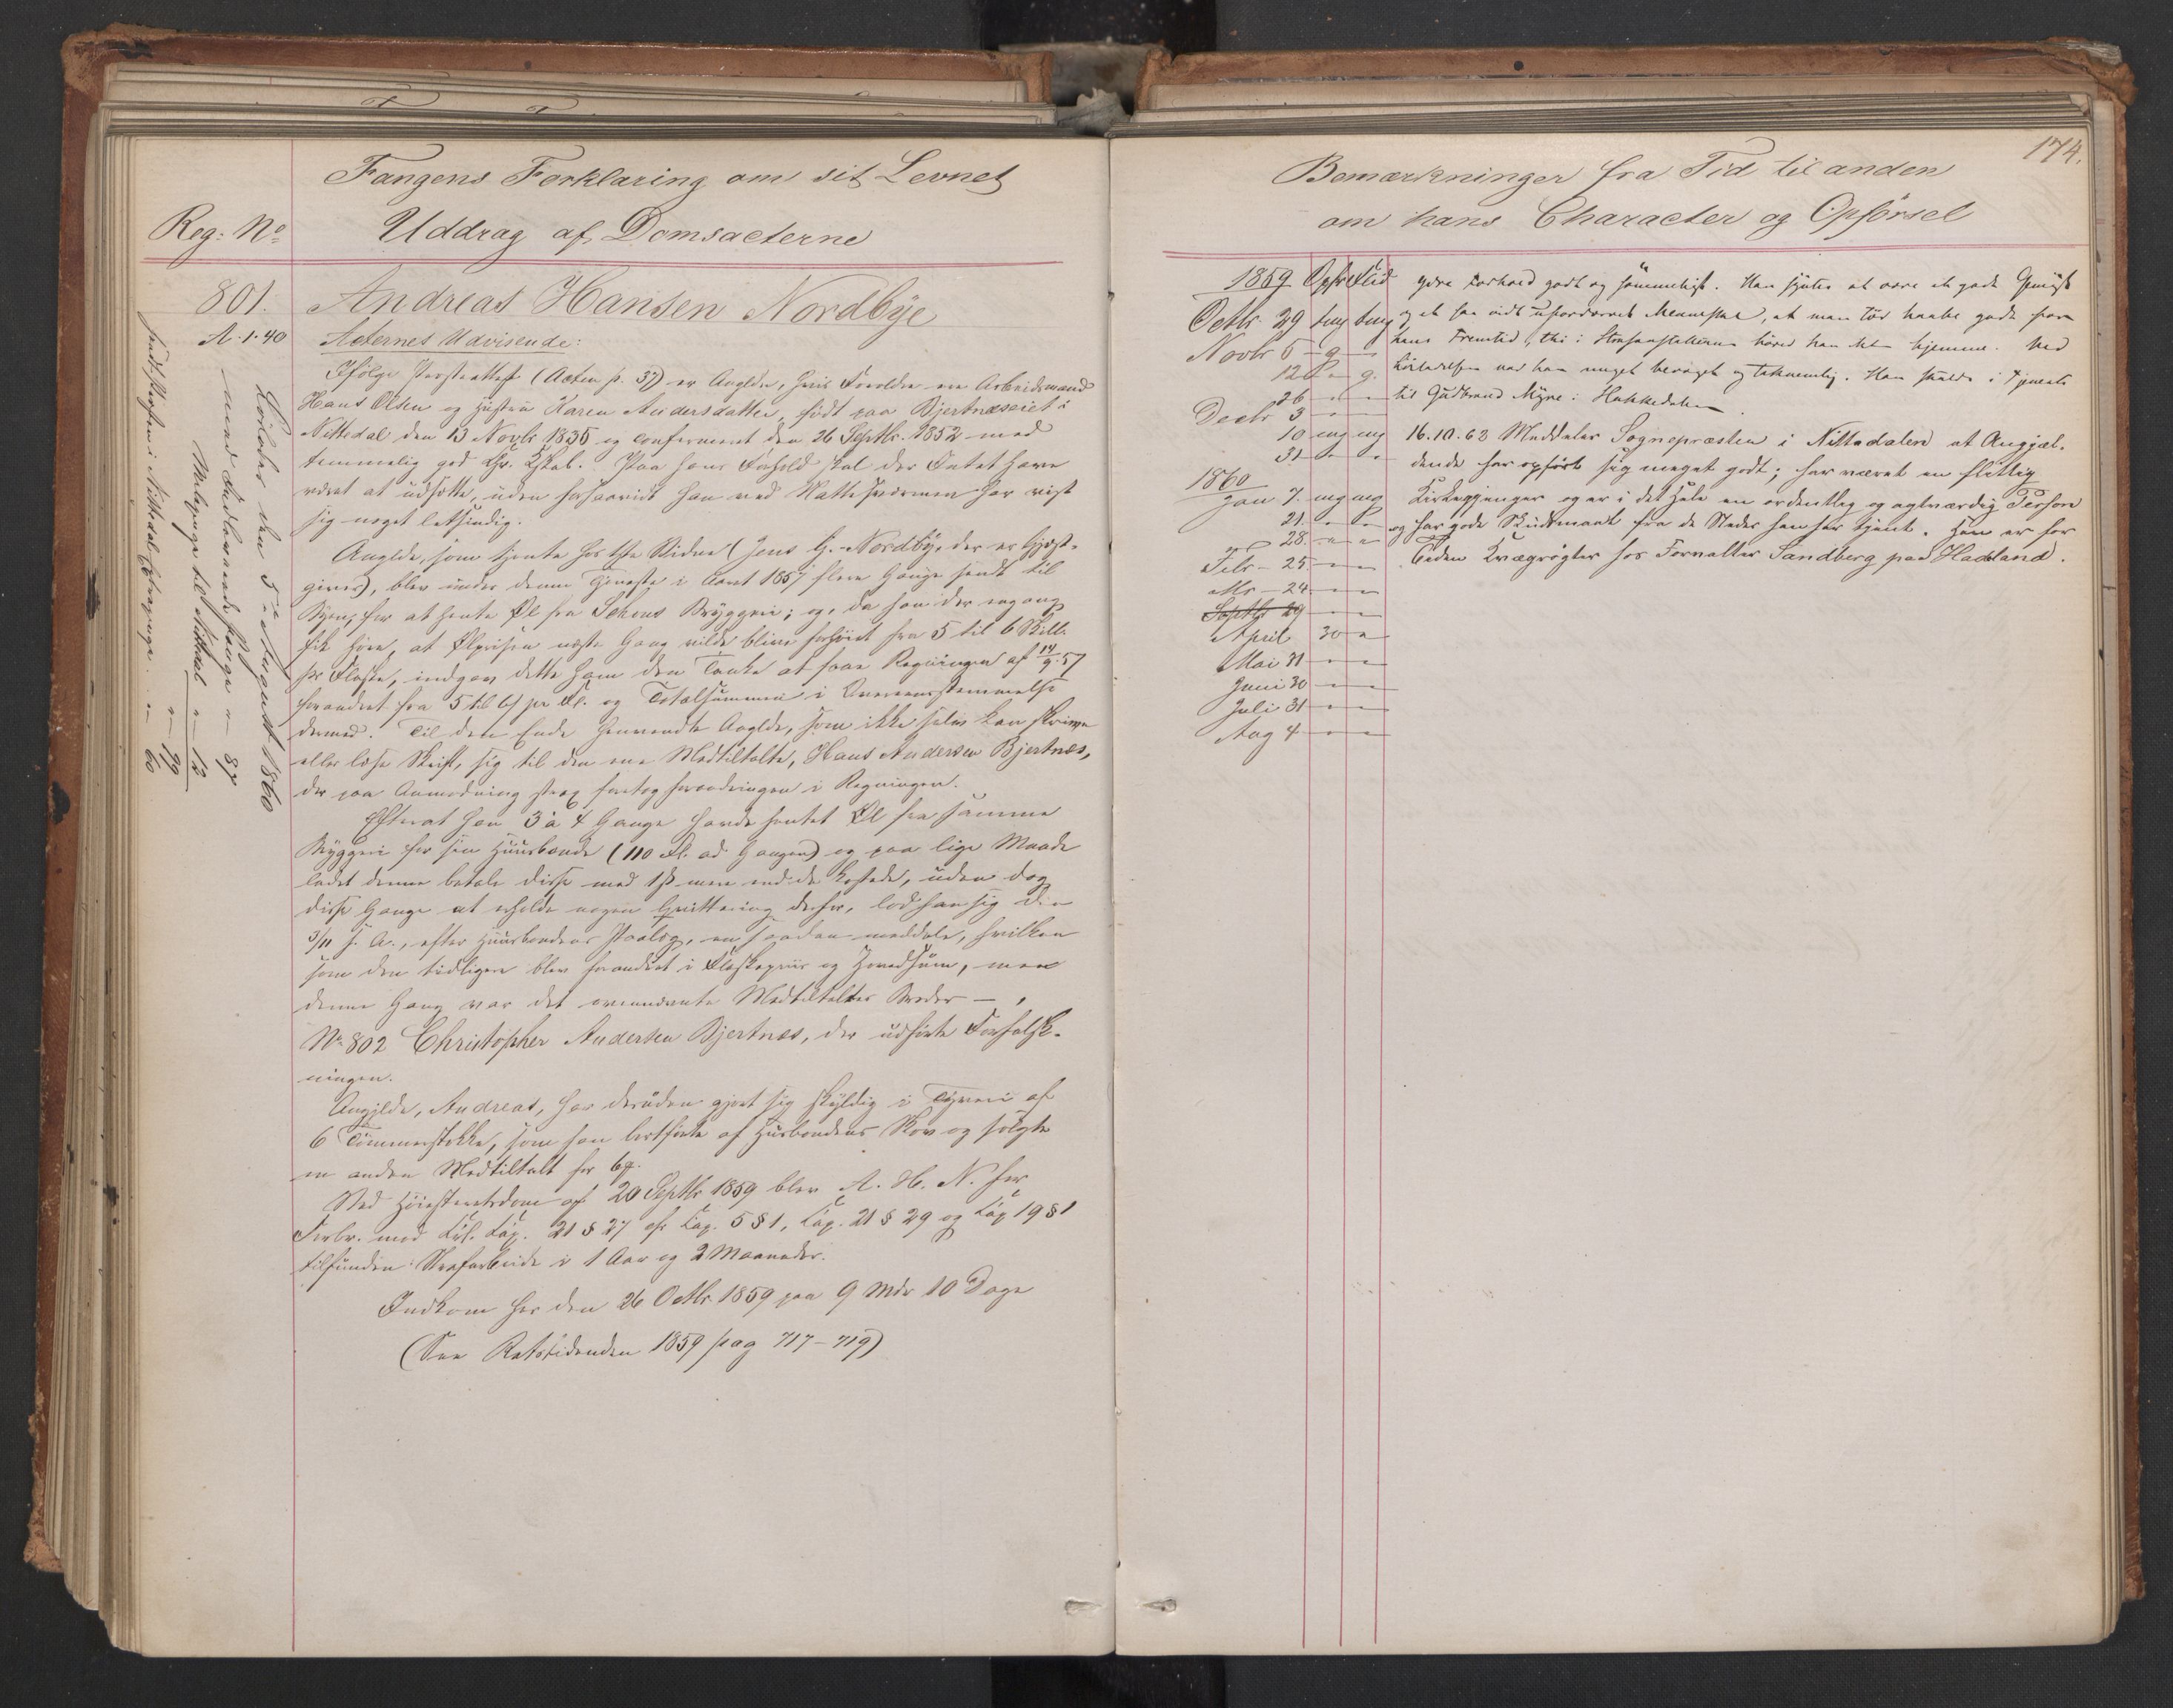 Fangens Forklaring om sit Levnet
Uddrag af Domsacterne
Reg: No
801.
A.1.40
Andreas Hansen Nordbye
Acternes Udvisende:
Ifølge Præsteattest (Acten p. 37) er Anglde, hvis Forældre ere Arbeidsmand
Hans Olsen og Hustru Karen Andersdatter, født paa Bjertnæseiet i
Nittedal den 13 Novbr 1835 og confirmeret den 26 Septbr. 1852 med
temmelig god Chr. Kskab. Paa hans Forhold skal der Intet have
været at udsætte, uden forsaavidt han ved Nattesværmen har vist
sig noget letsindig.
Anglde, som tjente hos 1ste Vidne (Jens G. Nordby, der er Gjæst-
giver), blev under denne Tjeneste i Aaret 1857 flere Gange sendt til
Byen, for at hente Øl fra Schous Bryggeri; og, da han der engang
fik høre, at Ølprisen næste Gang vilde blive forhøiet fra 5 til 6 Skill.
pr Flaske, indgav dette ham den Tanke at faae Regningen af 14/9.57
forandret fra 5 til 6 pr Fl. og Totalsummen i Overeensstemmelse
dermed. Til den Ende henvendte Anglde, som ikke selv kan skrive
eller læse Skrift, sig til den ene Medtiltalte, Hans Andersen Bjertnæs,
der paa Anmodning strax foretog forandringen i Regningen.
Efterat han 3 à 4 Gange havde hentet Øl fra samme
Bryggeri for sin Huusbonde (110 Fl. ad Gangen) og paa lige Maade
ladet denne betale disse med 1 ß mere end de kostede, uden dog
disse Gange at erholde nogen Qvittering derfor, lod han sig den
3/11 s. A., efter Huusbondens Paalæg, en saadan meddele, hvilken
som den tidligere blev forandret i Flaskepriis og Hovedsum, men
denne Gang var det ovennævnte Medtiltaltes Broder — ,
No 802 Christopher Andersen Bjertnæs, der udførte Forfalsk-
ningen.
Anglde, Andreas, har desuden gjort sig skyldig i Tyveri af
6 Tømmerstokke, som han bortførte af Husbondens Skov og solgte
en anden Medtiltalt for
Ved Høiesteretsdom af 20 Septbr 1859 blev A. H. N. for
Forbr. mod Crl. Cap. 21 § 27 cfr Cap. 5 § 1, Cap. 21 § 29 og Cap 19 § 1
tilfunden: Strafarbeide i 1 Aar og 2 Maaneder.
Indkom her den 26 Octbr 1859 paa 9 Mdr 10 Dage
(See Retstidenden 1859 pag 717–719)
Løslades den 5te August 1860
med Indlevnede Penge " – 87
Milepenge til Nittedal " – 12
" – 99
174.
Bemærkninger fra Tid til anden
om hans Character og Opførsel
1859 Opfør Flid
Octbr 29 tmg tmg
Novbr 5 – g –
12 – g.
26 – –
Decbr 3 –
10 mg mg
31 – –
1860
Jan 7. mg mg
21. – –
28 – –
Febr – 25 – –
Mts – 24 – –
Septbr 29 – –
April 30 –
Mai 31 – –
Juni 30 – –
Juli 31 – –
Aug 4 – –
ydre Forhold godt og sømmeligt. Han synes at være et godt Gemyt
og et saa vidt ufordærvet Menneske, at man tør haabe godt for
hans Fremtid, thi i Strafanstalterne hører han ikke hjemme. Ved
Løsladelsen var han meget bevæget og taknemlig. Han skulde i Tjeneste
til Gudbrand Myre i Hakkedalen.
16.10.63 Meddeler Sognepræsten i Nittedalen at Angjæl-
dende har opført sig meget godt; har været en flittig
Kirkegjænger og er i det Hele en ordentlig og agtværdig Person
og har gode Skudsmaal fra de Steder han har tjent. Han er for
Tiden Kvægrøgter hos Forvalter Sandberg paa Hadeland.